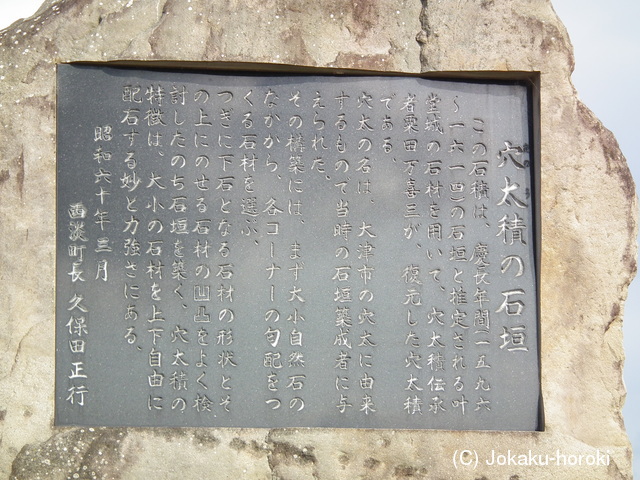 穴太積の石垣
この石積は、慶長年間(一五九六
～一六一四)の石垣と推定される叶
堂城の石材を用いて、穴太積伝承
者粟田万喜三が、復元した穴太積
である。
穴太の名は、大津市の穴太に由来
するもので当時の石垣築成者に与
えられた。
その構築には、まず大小自然石の
なかから、各コーナーの勾配をつ
くる石材を選ぶ、
つぎに下石となる石材の形状とそ
の上にのせる石材の凹凸をよく検
討したのち石垣を築く、穴太積の
特徴は、大小の石材を上下自由に
配石する妙と力強さにある、
昭和六十年三月
西淡町長 久保田正行
(C) Jokaku-horoki